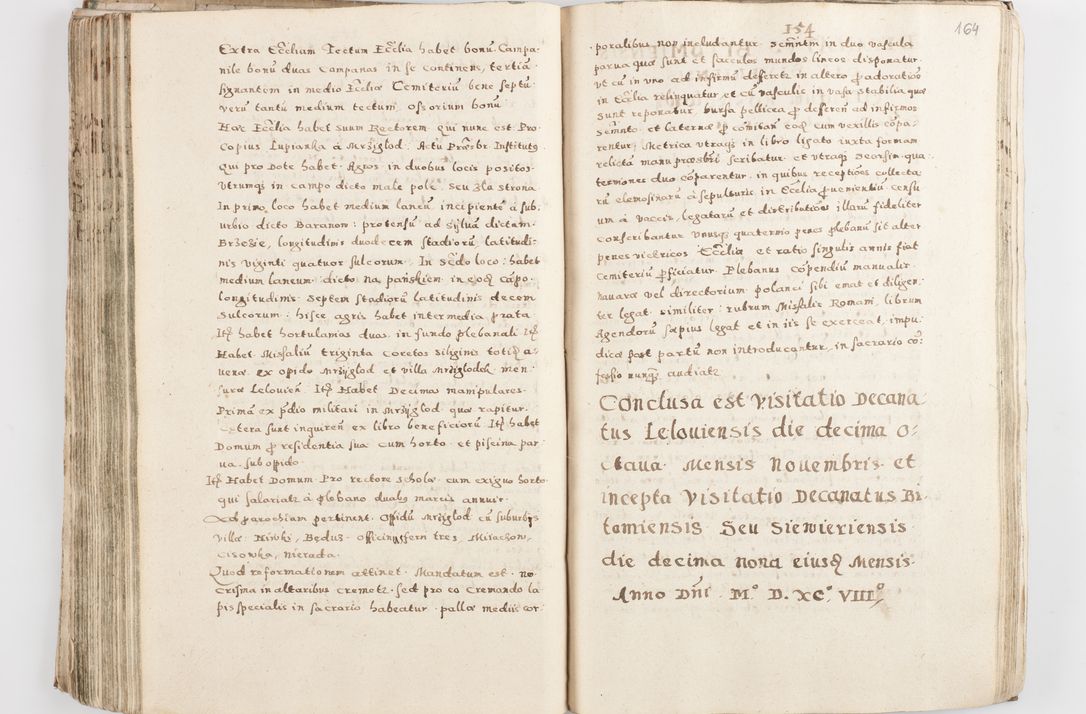 Extra Eccliam Tectum Ecclia habet bonũ. Campa-
nile bonũ duas Campanas in se continens, tertiã
signantem in medio Ecclia Cemiteriũ bene septũ
verũ tantũ medium tectum, Ossorium bonũ
Hæc Ecclia habet suum Rectorem qui nunc est Pro-
copius Lupianka à Mrziglod. Actu Præsbr Institutꝯ
qui pro Dote habet Agros in duobus locis positos
Utrumqꝫ in campo dicto male pole, seu zla strona
In primo loco habet medium laneũ incipientẽ a sub-
urbio dicto Baranom: protensũ ad syluã dictam
Brzezie, longitudinis duodecem stadiorũ latitudi-
nis viginti quatuor sulcorum. In Scdo loco: habet
medium laneum dicto na pańskiem in eoqꝫ cãpo
longitudinis septem stadiorũ latitudinis decem
sulcorum: hisce agris habet intermedia prata
Itꝫ habet hortulanias duas in fundo plebanali. Itꝫ
Habet Missaliũ triginta Coretos siliginis totiqꝫ a-
venæ ex opido Mrzyglod et villa Mrziglodek men-
suræ Leloviẽn Itꝫ Habet Decimas manipulares
Primã ex pdio militari in Mrzyglod quæ rapitur.
Cætera sunt inquirẽn ex libro beneficiorũ Itꝫ habet
Domum p residentia sua cum horto et piscina par-
va sub opido
Itꝫ Habet Domum Pro rectore scholæ cum exiguo horto
qui salariatr à plebano duabꝯ marcis annuis.
Ad parochiam pertinent. Opidũ Mrziglod cũ suburbijs
Villæ Niwki, Będus officinæ ferri tres, Mitachow,
Cisowka, Nierada.
Quod reformationem attinet. Mandatum est ne
Crisma in altaribus cremetr sed pro eo cremando la-
pis specialis in sacrario habeatur. pallæ mediis cor-
154
164
poralibus non includantur. Semñtm in duo vascula
parva quæ sunt et sacculos mundos lineos disponatur
ut cũ in uno ad infirmũ defferetr in altero p adoratiõe
in Ecclia relinquatur et cũ vasculis in vasa stabilia quæ
sunt reponatur bursa pellicea p defferẽn ad infirmos
Semñto et laternæ p comitãn eoqꝫ cum vexillis cõpa-
rentur, Metrica utraqꝫ in libro ligato iuxta formam
relictã manu præsbri scribatur et utraqꝫ seorsim qua-
terniones duo cõparentur in quibus receptiões collecta-
rũ elemosinarũ à sepulturis in Ecclia pvenientiũ censu-
um à vaccis, legatarũ et distributiões illarũ fideliter
conscribantur vnusqꝫ quaternio penes plebanũ sit alter
penes vietricos Ecclia et ratio singulis annis fiat
Cemiteriũ pficiatur Plebanus cõpendiũ manualis
Navaræ vel directorium polanci sibi emat et diligen-
ter legat similiter: rubrum Missalis Romani, librum
Agendorũ sæpius legat et in iis se exerceat, impu-
dicæ post partũ non introducantur, in sacrario cõ-
fessio nunqꝫ audiatr
Conclusa est Visitatio Decana-
tus Leloviensis die decima o-
ctava Mensis Novembris et
incepta Visitatio Decanatus Bi-
tomiensis Seu Siewieriensis
die decima nona eiusqꝫ Mensis
Anno Dñi M.º D. XCº VIIIº